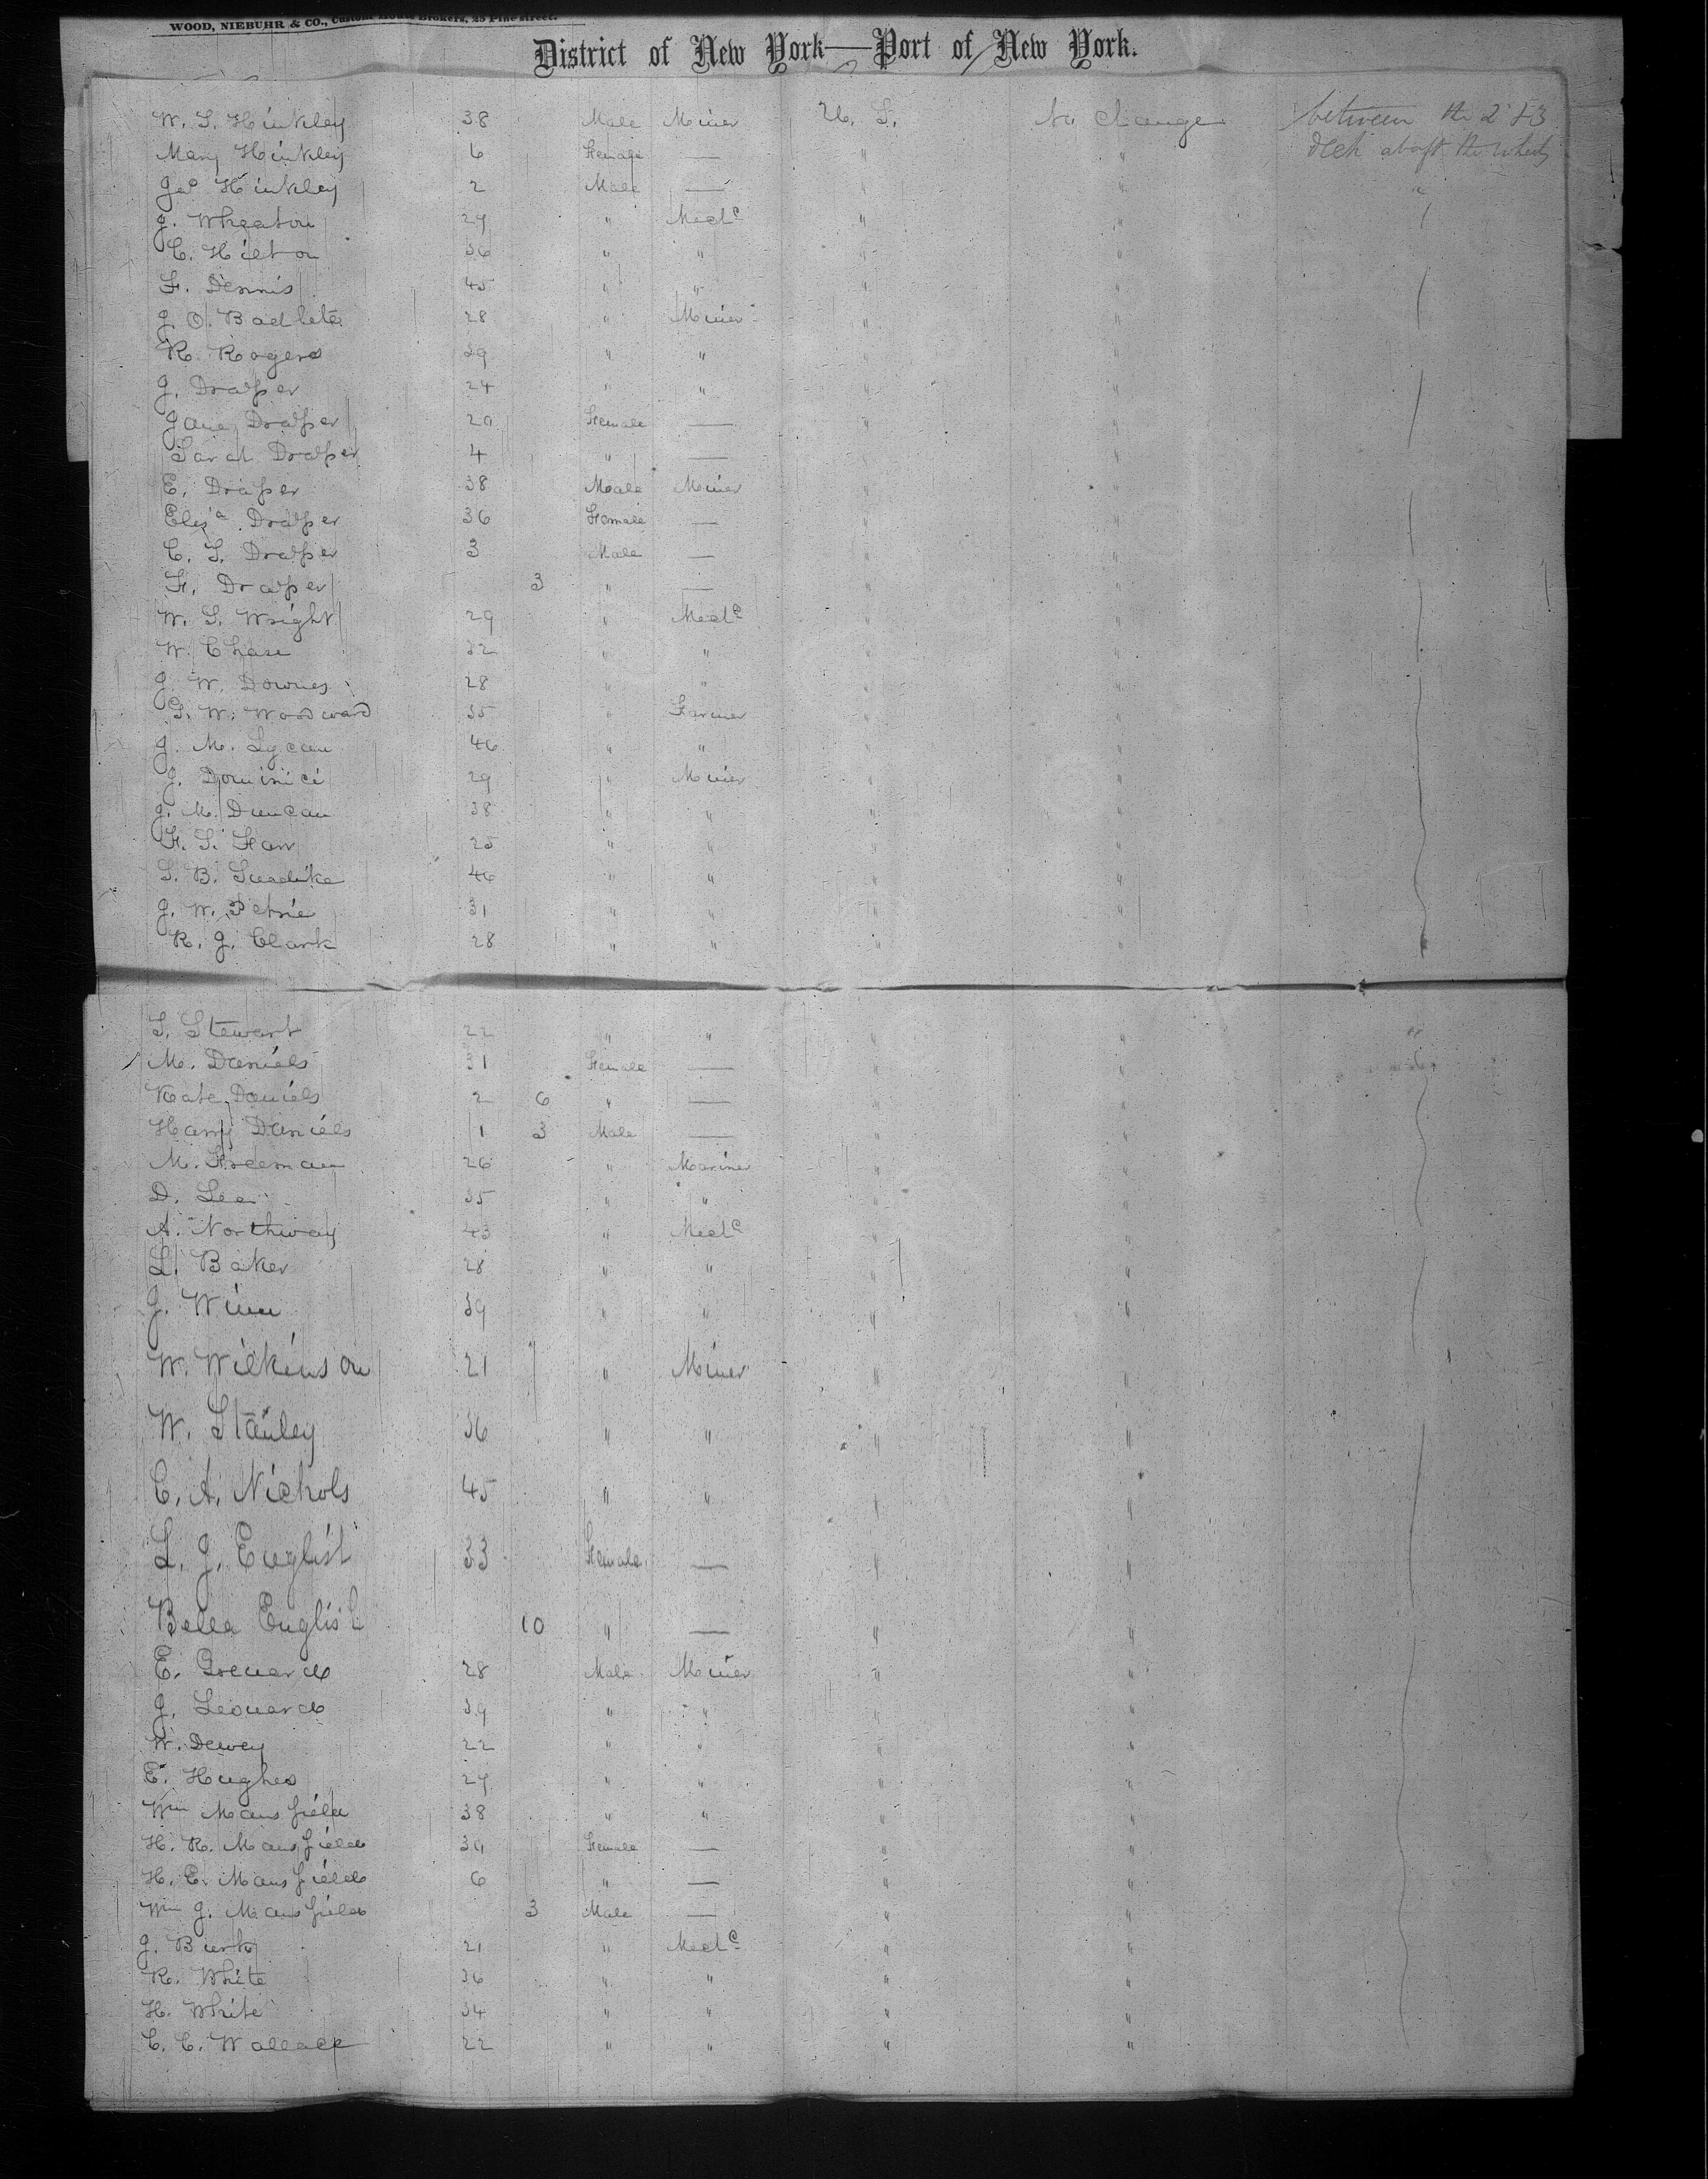 WOOD, NIEBUHR & CO., Custom House Brokers, 25 Pine street.
District of New York—Port of New York.
W. S. Hinkley 38 Male Miner U. S. No change between the 2 & 3
Mary Hinkley 6 Female — " " deck abaft the wheels
Geo Hinkley 2 Male — " " "
J. Wheaton 27 " Mechc " "
C. Hilton 36 " " " "
F. Dennis 45 " " " "
J. O. 28 " Miner " "
R. Rogers 39 " " " "
J. Draper 24 " " " "
Jane Draper 20 Female — " "
Sarah Draper 4 " — " "
E. Draper 38 Male Miner " "
Eliza Draper 36 Female — " "
C. S. Draper 3 Male — " "
F. Draper 3 " — " "
W. S. Wright 29 " Mechc " "
W. Chase 32 " " " "
J. W. Downes 28 " " " "
S. W. Woodward 35 " Farmer " "
J. M. Lycan 46 " " " "
J. Dominici 29 " Miner " "
J. M. Duncan 38 " " " "
F. S. Farr 25 " " " "
S. B. 46 " " " "
J. W. Petrie 31 " " " "
R. J. Clark 28 " " " "
S. Stewart 22 " " " " "
M. Daniels 31 Female — " "
Kate Daniels 2 6 " — " "
Harry Daniels 1 3 Male — " "
M. Freeman 26 " Mariner " "
D. Lee 35 " " " "
A. Northway 43 " Mechc " "
L. Baker 28 " " " "
J. Winn 39 " " " "
W. Wilkinson 21 " Miner " "
W. Stanley 36 " " " "
C. A. Nichols 45 " " " "
L. J. English 33 Female — " "
Bella English 10 " — " "
E. 28 Male Miner " "
J. Leonard 39 " " " "
W. Dewey 22 " " " "
E. Hughes 27 " " " "
Wm Mansfield 38 " " " "
H. R. Mansfield 30 Female — " "
H. E. Mansfield 6 " — " "
Wm J. Mansfield 3 Male — " "
J. Burk 21 " Mechc " "
R. White 36 " " " "
H. White 34 " " " "
C. C. Wallace 22 " " " "